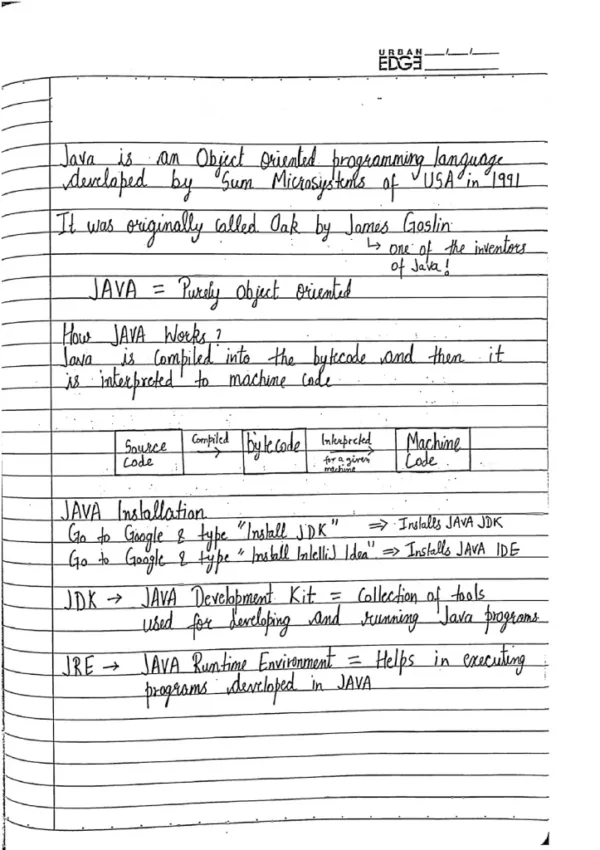 URBAN
EDGE
Java is an Object Oriented programming language
developed by Sum Microsystems of USA in 1991
It was originally called Oak by James Goslin
↳ one of the inventors
of Java!
JAVA = Purely Object Oriented
How JAVA Works?
Java is Compiled into the bytecode and then it
is interpreted to machine code
Source Code
Compiled →
bytecode
Interpreted → for a given machine
Machine Code
JAVA Installation
Go to Google & type "Install JDK" ⇒ Installs JAVA JDK
Go to Google & type "Install IntelliJ Idea" ⇒ Installs JAVA IDE
JDK → JAVA Development Kit = Collection of tools
used for developing and running Java programs
JRE → JAVA Runtime Environment = Helps in executing
programs developed in JAVA